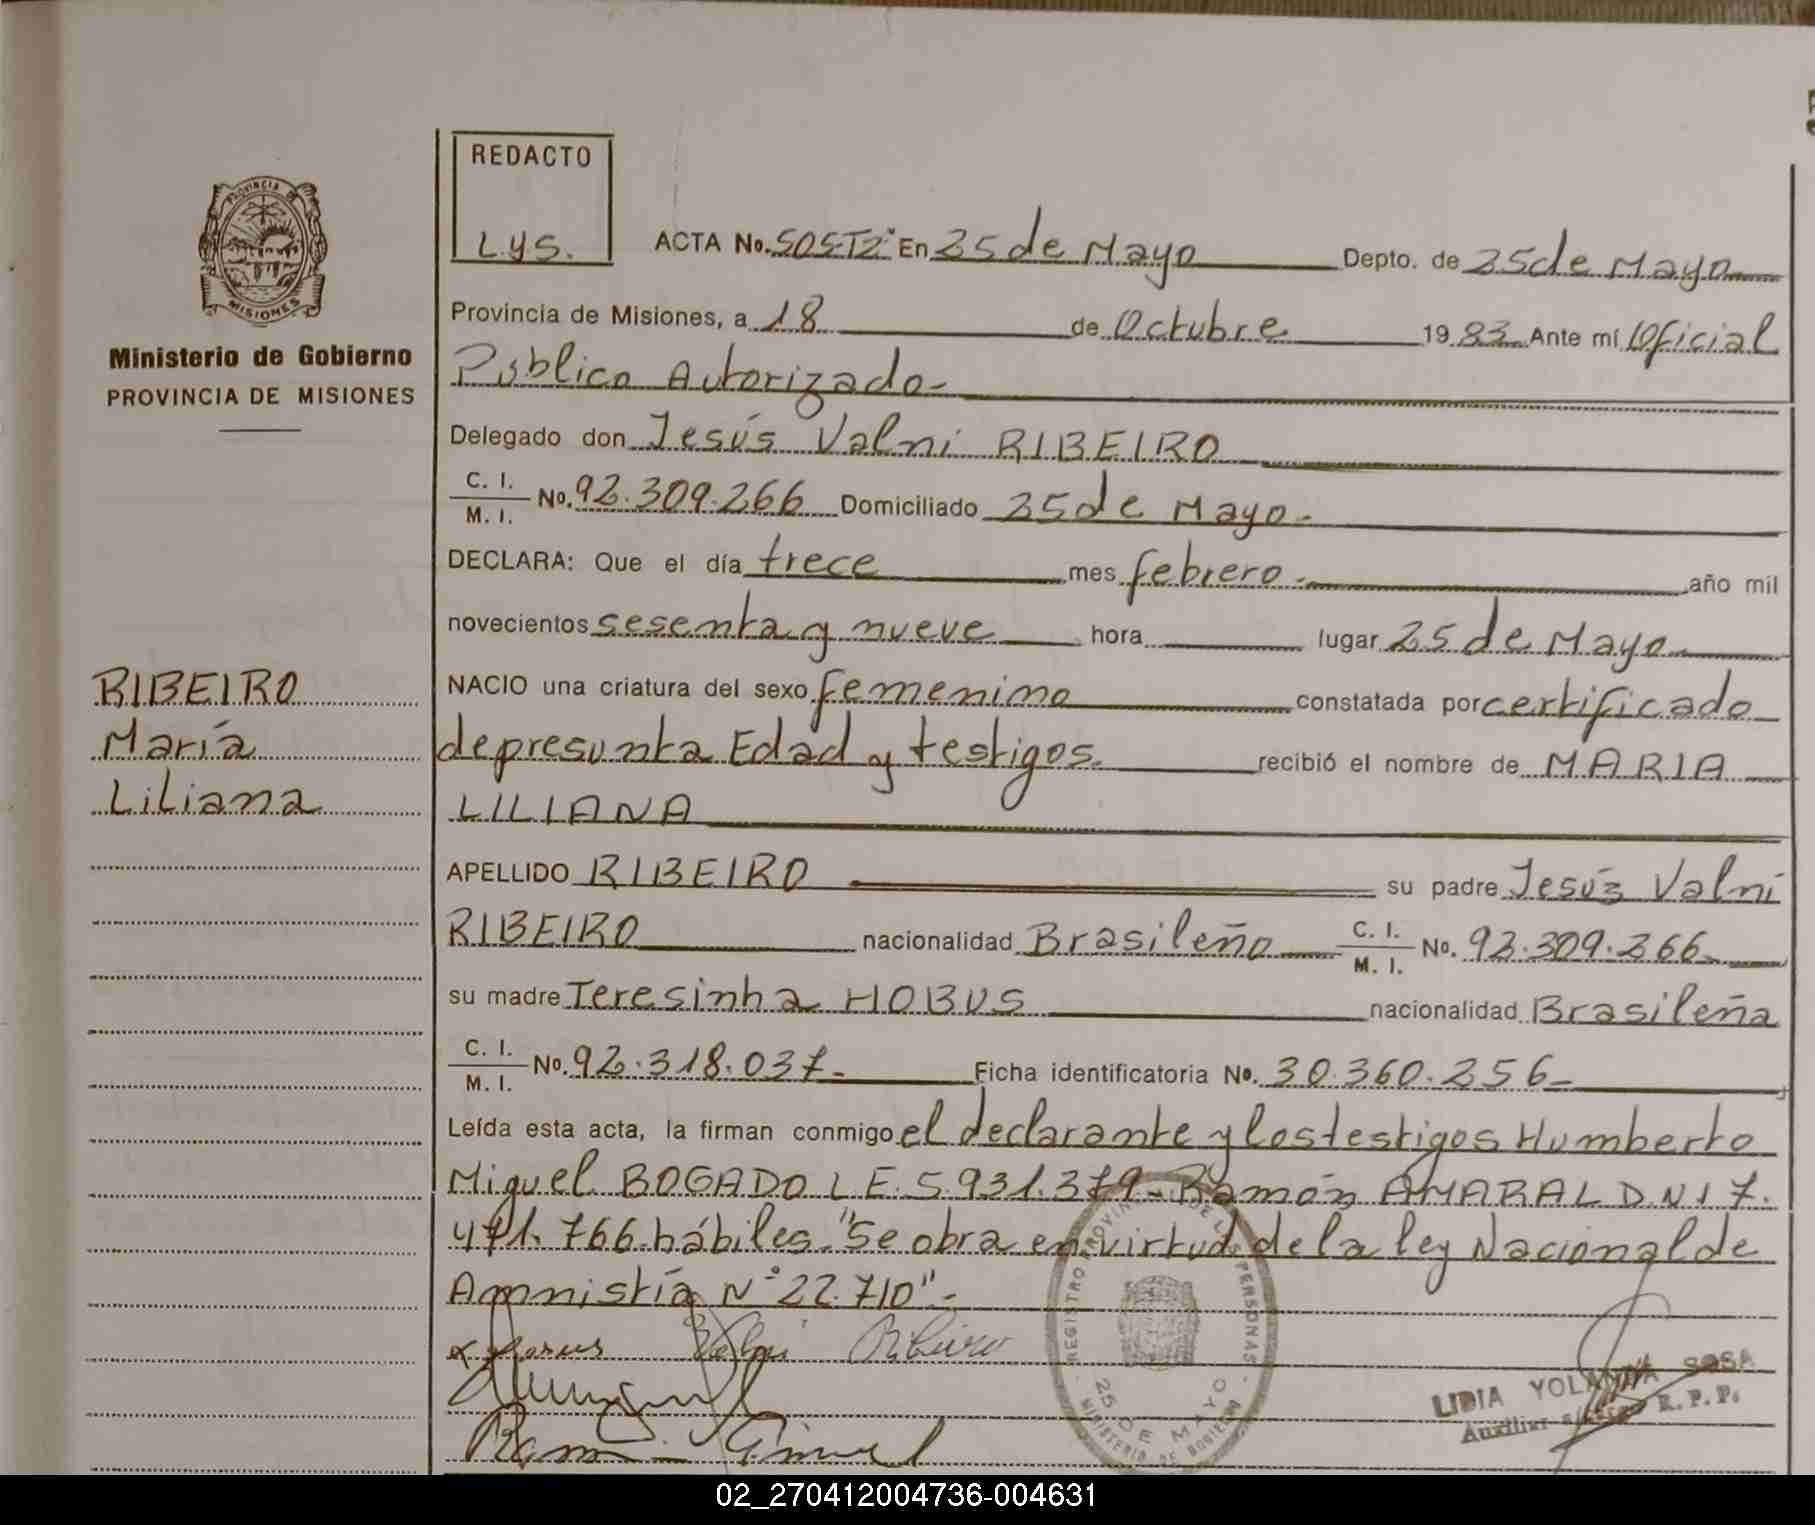 REDACTO
L.Y.S.
ACTA No. 505-T2° En 25 de Mayo Depto. de 25 de Mayo
PROVINCIA DE
MISIONES
Provincia de Misiones, a 18 de Octubre 1983 Ante mí Oficial
Ministerio de Gobierno
PROVINCIA DE MISIONES
Público Autorizado-
Delegado don Jesús Valni RIBEIRO
C. I.
M. I. No. 92.309.266 Domiciliado 25 de Mayo-
DECLARA: Que el día trece mes febrero- año mil
novecientos sesenta y nueve hora lugar 25 de Mayo
RIBEIRO
María
Liliana
NACIO una criatura del sexo femenino constatada por certificado
de presunta Edad y testigos. recibió el nombre de MARIA
LILIANA
APELLIDO RIBEIRO su padre Jesús Valni
RIBEIRO nacionalidad Brasileño C. I.
M. I. No. 92.309.266
su madre Teresinha HOBUS nacionalidad Brasileña
C. I.
M. I. No. 92.318.037- Ficha identificatoria No. 30.360.256-
Leída esta acta, la firman conmigo el declarante y los testigos Humberto
Miguel BOGADO L.E. 5.931.379- Ramón AMARAL D.N.I 7.
471.766 hábiles. "Se obra en virtud de la ley Nacional de
Amnistía N° 22.710"-
x Jesus Valni Ribeiro
REGISTRO PROVINCIAL DE LAS PERSONAS
25 DE MAYO
MINISTERIO DE GOBIERNO
LIDIA YOLANDA SOSA
Auxiliar R. P. P.
02_270412004736-004631